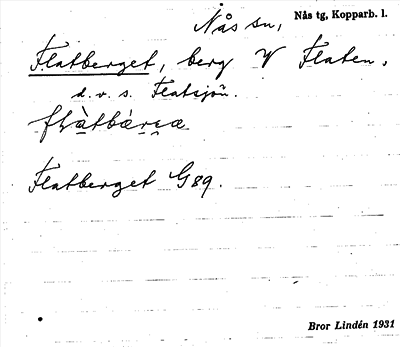 Nås sn, Nås tg, Kopparb. l.
Flatberget, berg V Flaten,
d.v.s. Flatsjön.
Flatberget G 89.
Bror Lindén 1931